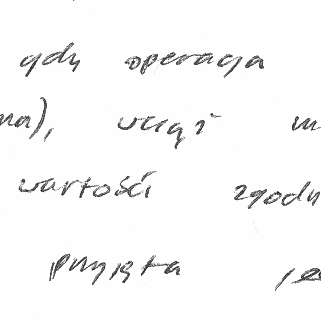 gdy operacja
na), wciąż
wartości zgodn
przyjęta je